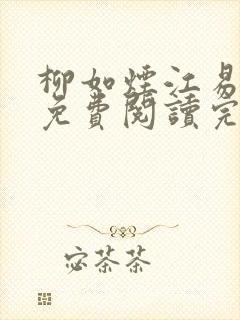 柳如煙江易
免費閱讀完
宓茶茶